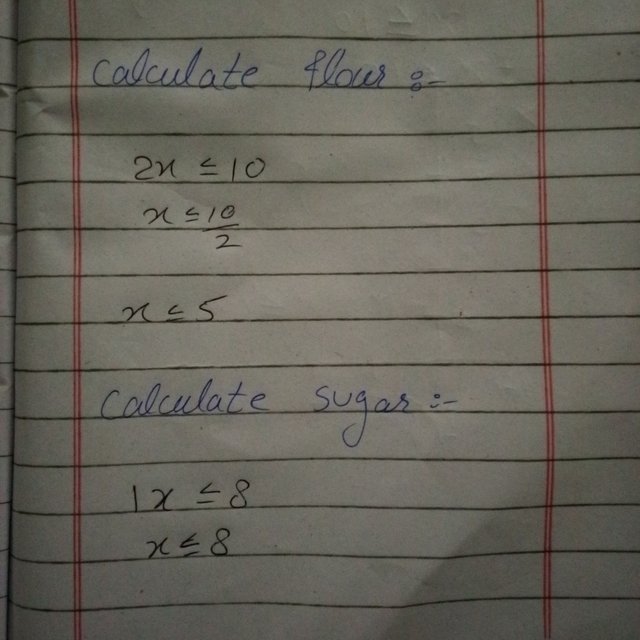 Calculate flour :-
2x ≤ 10
x ≤ 10/2
x ≤ 5
Calculate sugar :-
1x ≤ 8
x ≤ 8